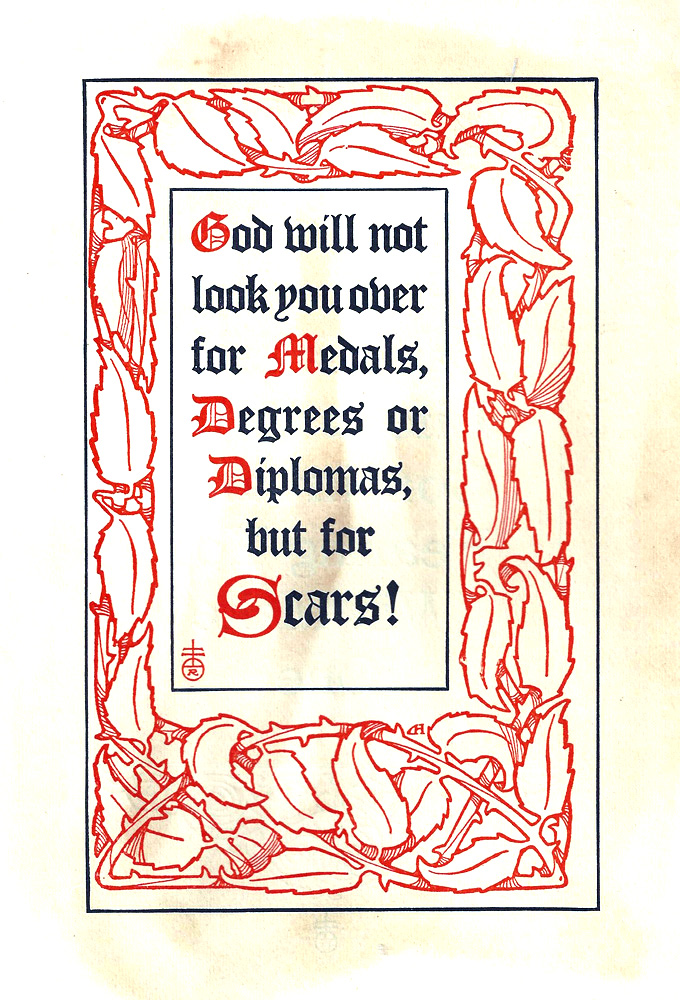 God will not
look you over
for Medals,
Degrees or
Diplomas,
but for
Scars!
R